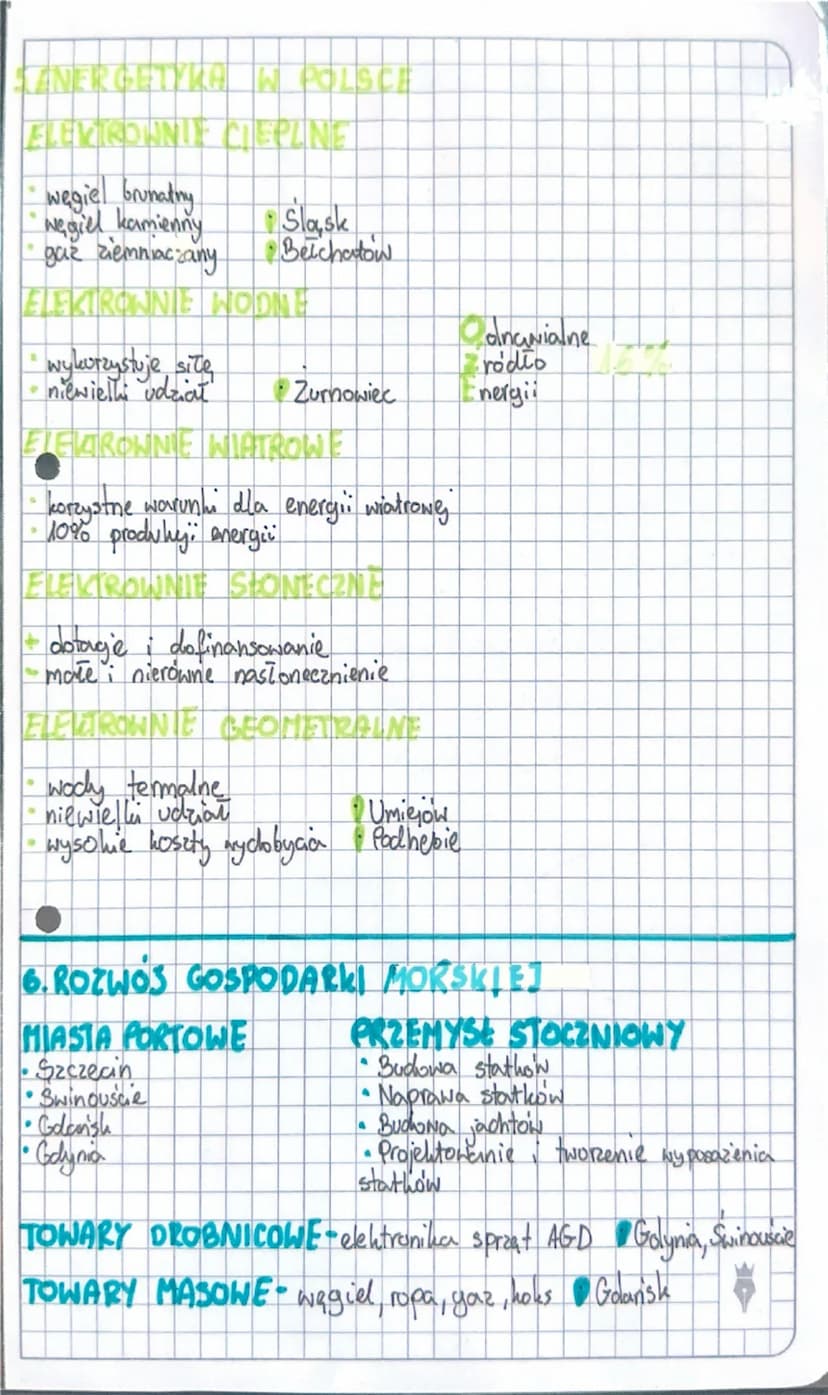 5. ENERGETYKA W POLSCE
ELEKTROWNIE CIEPLNE
• węgiel brunatny
• węgiel kamienny Śląsk
• gaz ziemniaczany Bełchatów
ELEKTROWNIE WODNE
Odnawialne
• wykorzystuje siłę Źródło 16%
• niewielki udział Żurnowiec Energii
ELEKTROWNIE WIATROWE
• korzystne warunki dla energii wiatrowej
• 10% produkcji energii
ELEKTROWNIE SŁONECZNE
+ dotacje i dofinansowanie
- małe i nierówne nasłonecznienie
ELEKTROWNIE GEOMETRALNE
• wody termalne
• niewielki udział Umiejów
• wysokie koszty wydobycia Podhebie
6. ROZWÓJ GOSPODARKI MORSKIEJ
MIASTA PORTOWE PRZEMYSŁ STOCZNIOWY
• Szczecin • Budowa statków
• Świnouście • Naprawa statków
• Gdańsk • Budowa jachtów
• Gdynia • Projektowanie i tworzenie wyposażenia
statków
TOWARY DROBNICOWE - elektronika sprzęt AGD Gdynia, Świnouście
TOWARY MASOWE - węgiel, ropa, gaz, koks Gdańsk